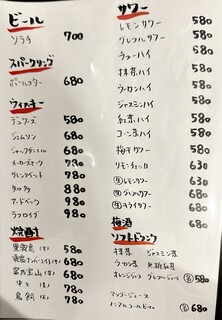 ビール
ソラチ 700
スパークリング
ポールスター 680
ウィスキー
デュワーズ 580
ジェムソン 680
ジャックダニエル 680
メーカーズマーク 780
グレンリベット 780
タリスカー 880
アードベック 980
ラフロイグ 980
焼酎
580
680
富乃宝山(芋) 680
中々(麦) 780
鳥飼(米) 780
サワー
レモンサワー 580
グレフルサワー 580
ウーハイ 580
抹茶ハイ 580
ウーロンハイ 580
ジャスミンハイ 580
紅茶ハイ 580
コーン茶ハイ 580
梅干サワー 580
リモンチェッロ 630
レモンサワー 630
グレフルサワー 680
キウイサワー 680
梅酒 680
ソフトドリンク
抹茶 ジャスミン茶
ウーロン茶
オレンジジュース グレフルジュース 580
マンゴージュース
ノンアルコールビール 680